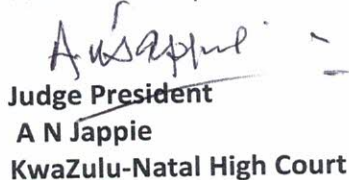 ANJappie
Judge President
A N Jappie
KwaZulu-Natal High Court